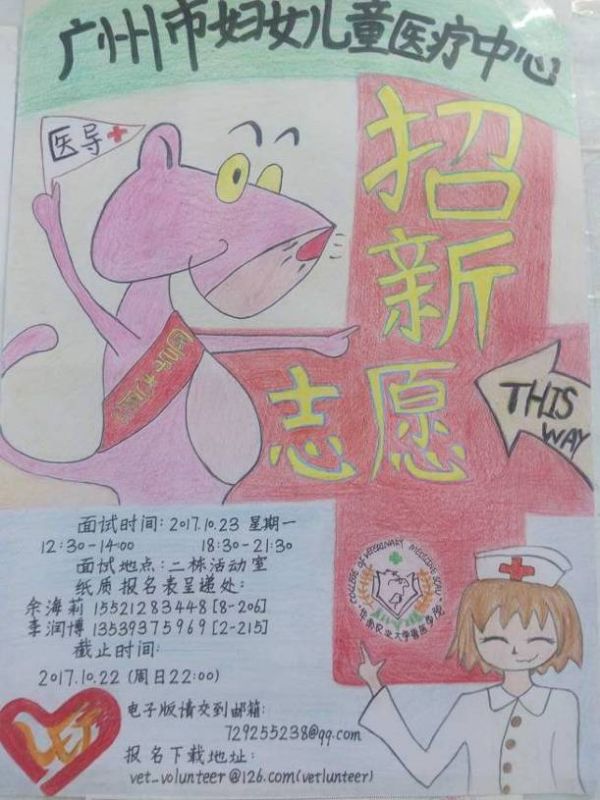 广州市妇女儿童医疗中心
医导
招新
志愿
THIS
WAY
面试时间: 2017.10.23 星期一
12:30-14:00 18:30-21:30
面试地点: 二栋活动室
纸质报名表呈递处:
余海莉 15521283448 [8-206]
李润博 13539375969 [2-215]
截止时间:
2017.10.22 (周日22:00)
电子版请交到邮箱:
729255238@qq.com
报名下载地址:
vet_volunteer@126.com(vetlunteer)
COLLEGE OF VETERINARY MEDICINE SCAU
华南农业大学兽医学院
Vet